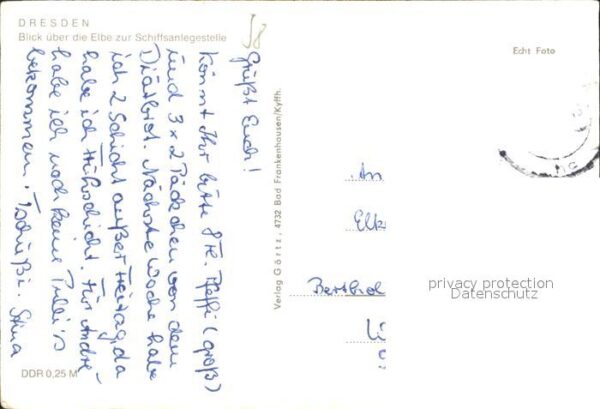 DRESDEN
Blick über die Elbe zur Schiffsanlegestelle
58
Echt Foto
Grüßt Euch!
Könnt Ihr bitte 8 St. Pfeffi (groß)
und 3 x 2 Päckchen von dem
Diätbrot. Nächste Woche habe
ich 2 Schicht außer Freitag, da
habe ich Frühschicht. Für André
habe ich noch keine Pulli's
bekommen. Tschüßi.
Verlag Görtz, 4732 Bad Frankenhausen/Kyffh.
An
Elk
Berthol
privacy protection
Datenschutz
DDR 0,25 M